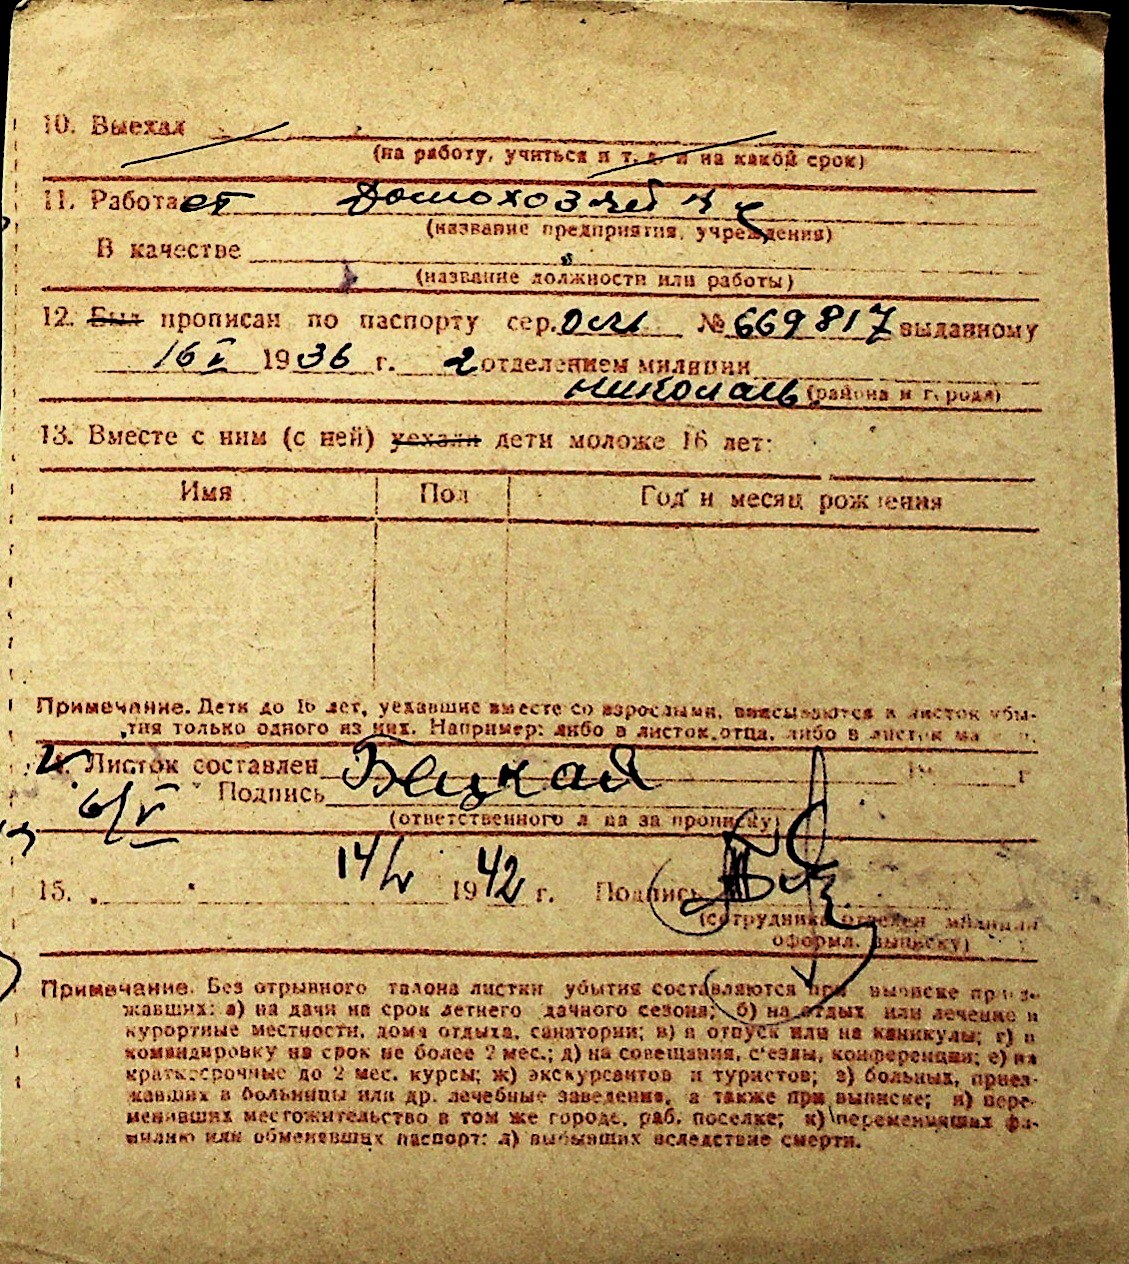 10. Выехал
(на работу, учиться и т. д. и на какой срок)
11. Работает Домохозяйка
(название предприятия, учреждения)
В качестве
(название должности или работы)
12. Был прописан по паспорту сер. № 669817 выданному
16 V 1936 г. 2 отделением милиции
Николаев (района и города)
13. Вместе с ним (с ней) уехали дети моложе 16 лет:
Имя Пол Год и месяц рождения
Примечание. Дети до 16 лет, уехавшие вместе со взрослыми, вписываются в листок убы-
тия только одного из них. Например: либо в листок отца, либо в листок
14. Листок составлен 19 г
6/V Подпись
(ответственного лица за прописку)
15. 14/V 1942 г. Подпись
(сотрудника отделен милиции
оформл. выписку)
Примечание. Без отрывного талона листки убытия составляются при выписке приез-
жавших: а) на дачи на срок летнего дачного сезона; б) на отдых или лечение в
курортные местности, дома отдыха, санатории; в) в отпуск или на каникулы; г) в
командировку на срок не более 2 мес.; д) на совещания, с'езды, конференции; е) на
краткосрочные до 2 мес. курсы; ж) экскурсантов и туристов; з) больных, приез-
жавших в больницы или др. лечебные заведения, а также при выписке; и) пере-
менивших местожительство в том же городе, раб. поселке; к) переменивших фа-
милию или обменевших паспорт; л) выбывших вследствие смерти.